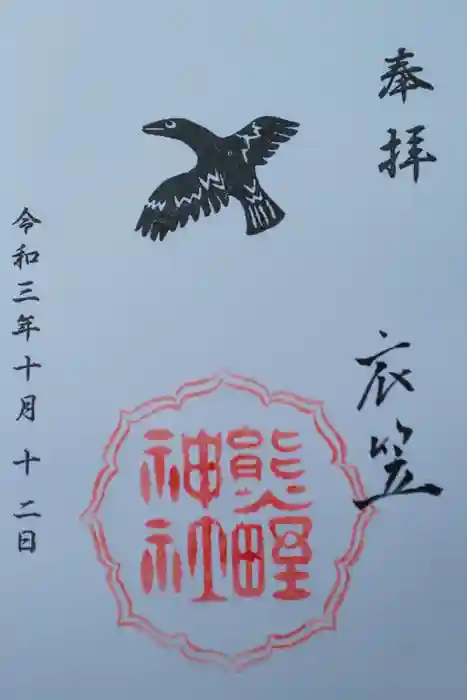 奉拝
衣笠
熊野
神社
令和三年十月十二日